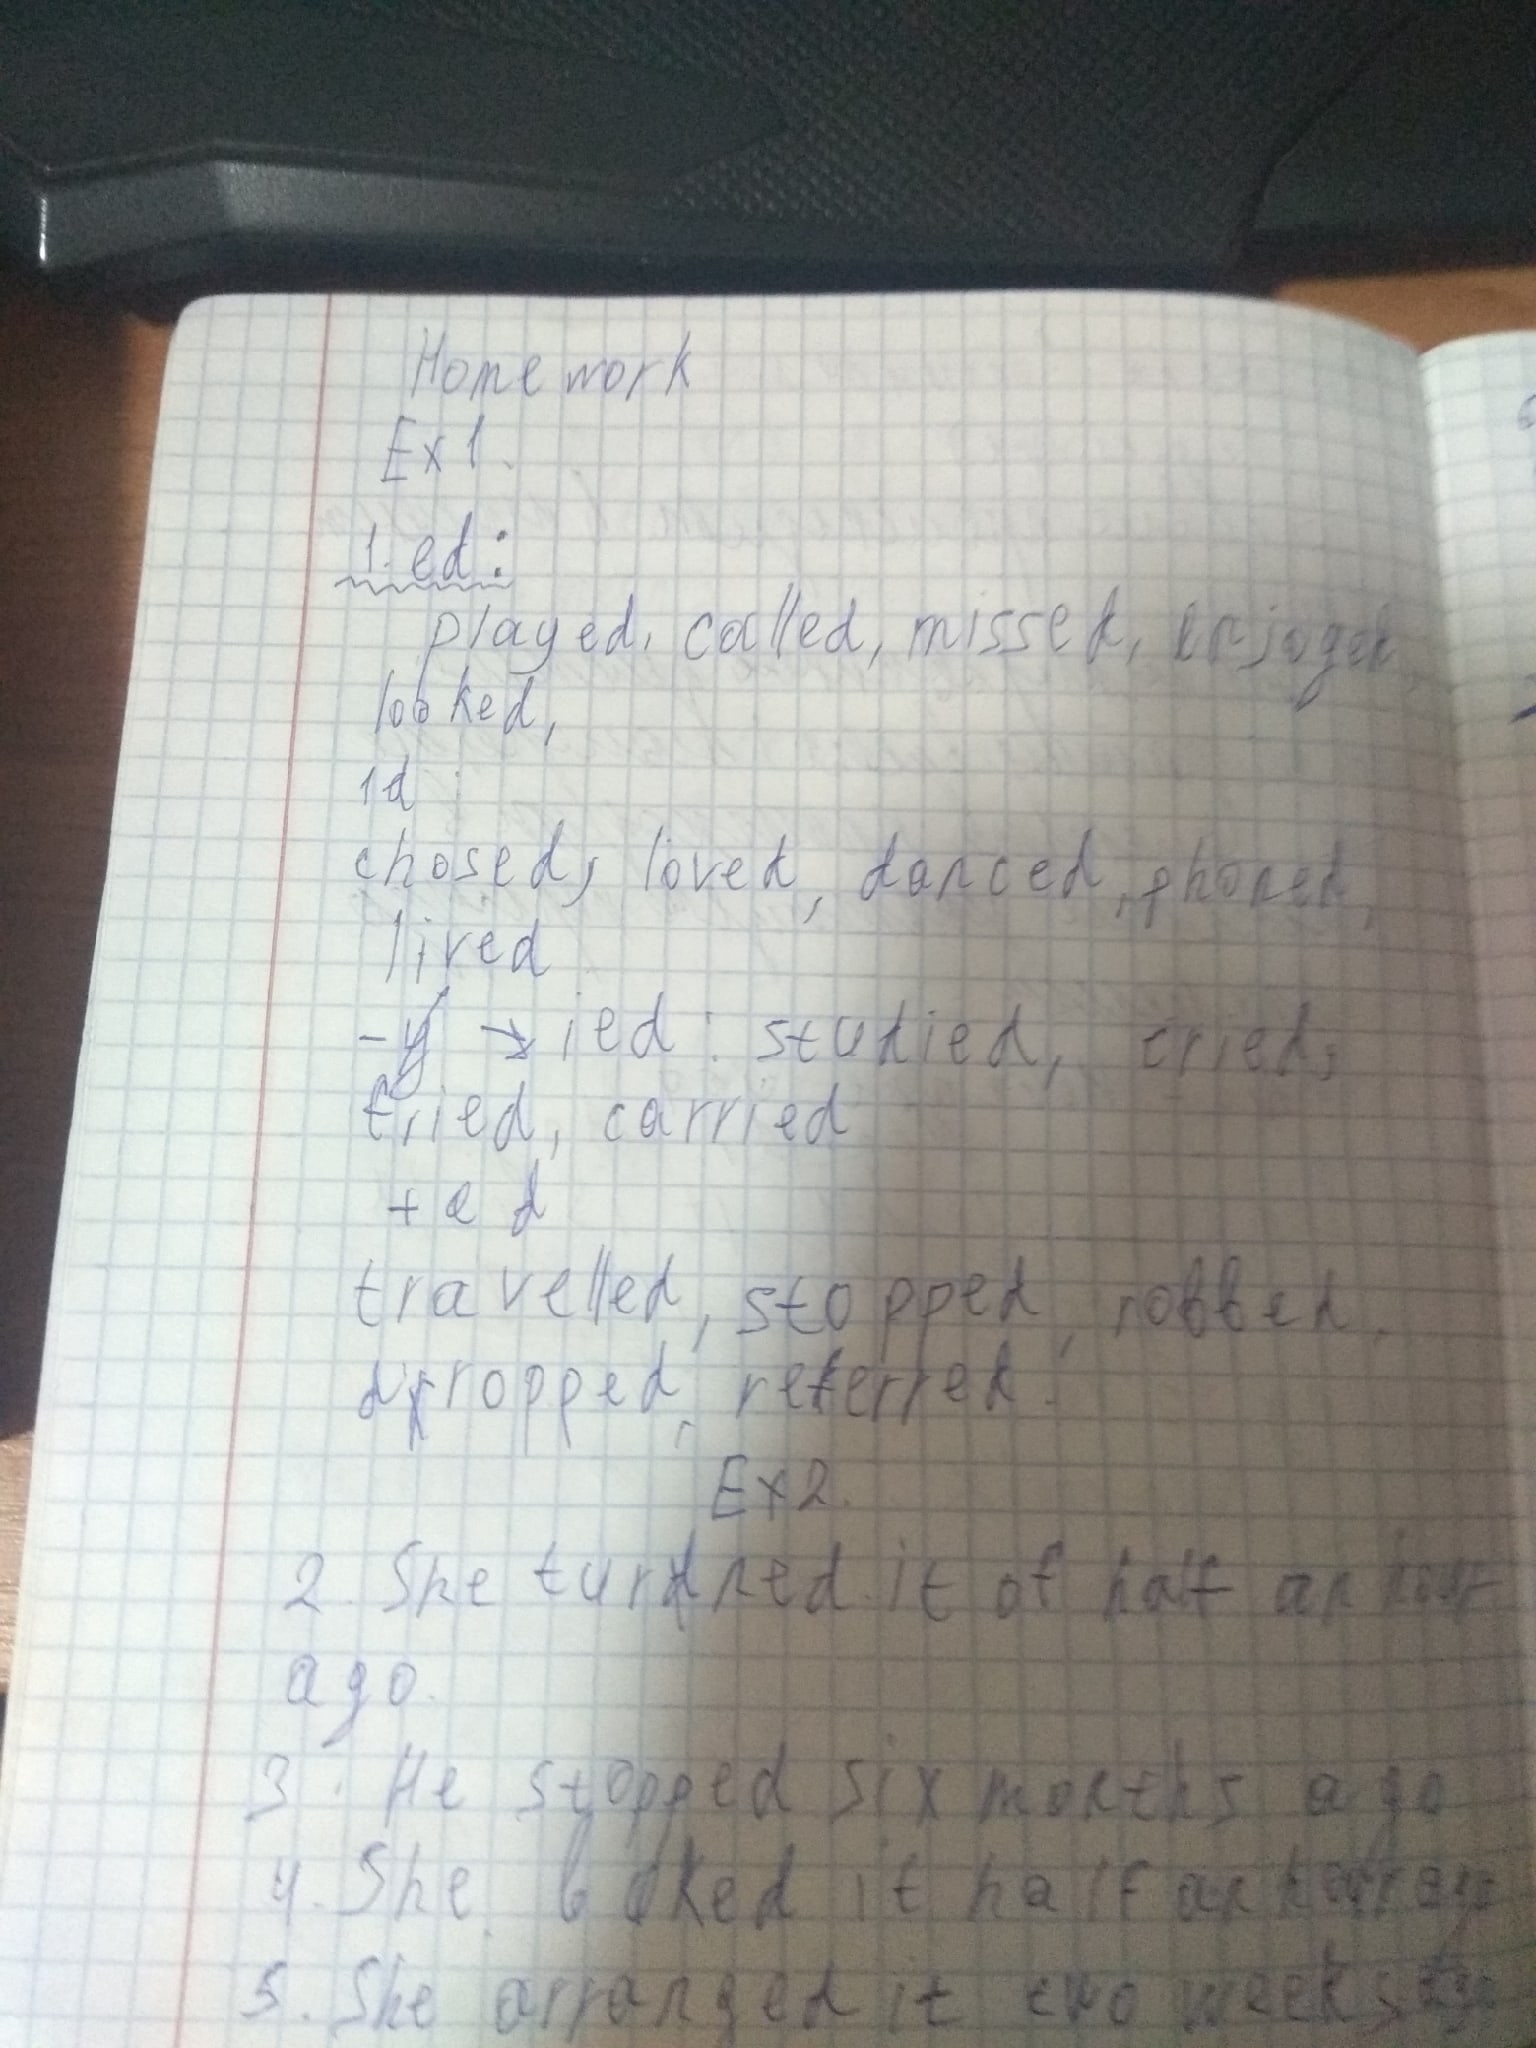 Homework
Ex 1.
1. ed:
played, called, missed, enjoyed
looked,
1d:
chosed, loved, danced, phoned,
lived
-y → ied: studied, cried,
tried, carried
+ed
travelled, stopped, robbed,
dropped, referred.
Ex 2.
2. She turned it of half an hour
ago.
3. He stopped six months ago
4. She booked it half an hour ago
5. She arranged it two weeks